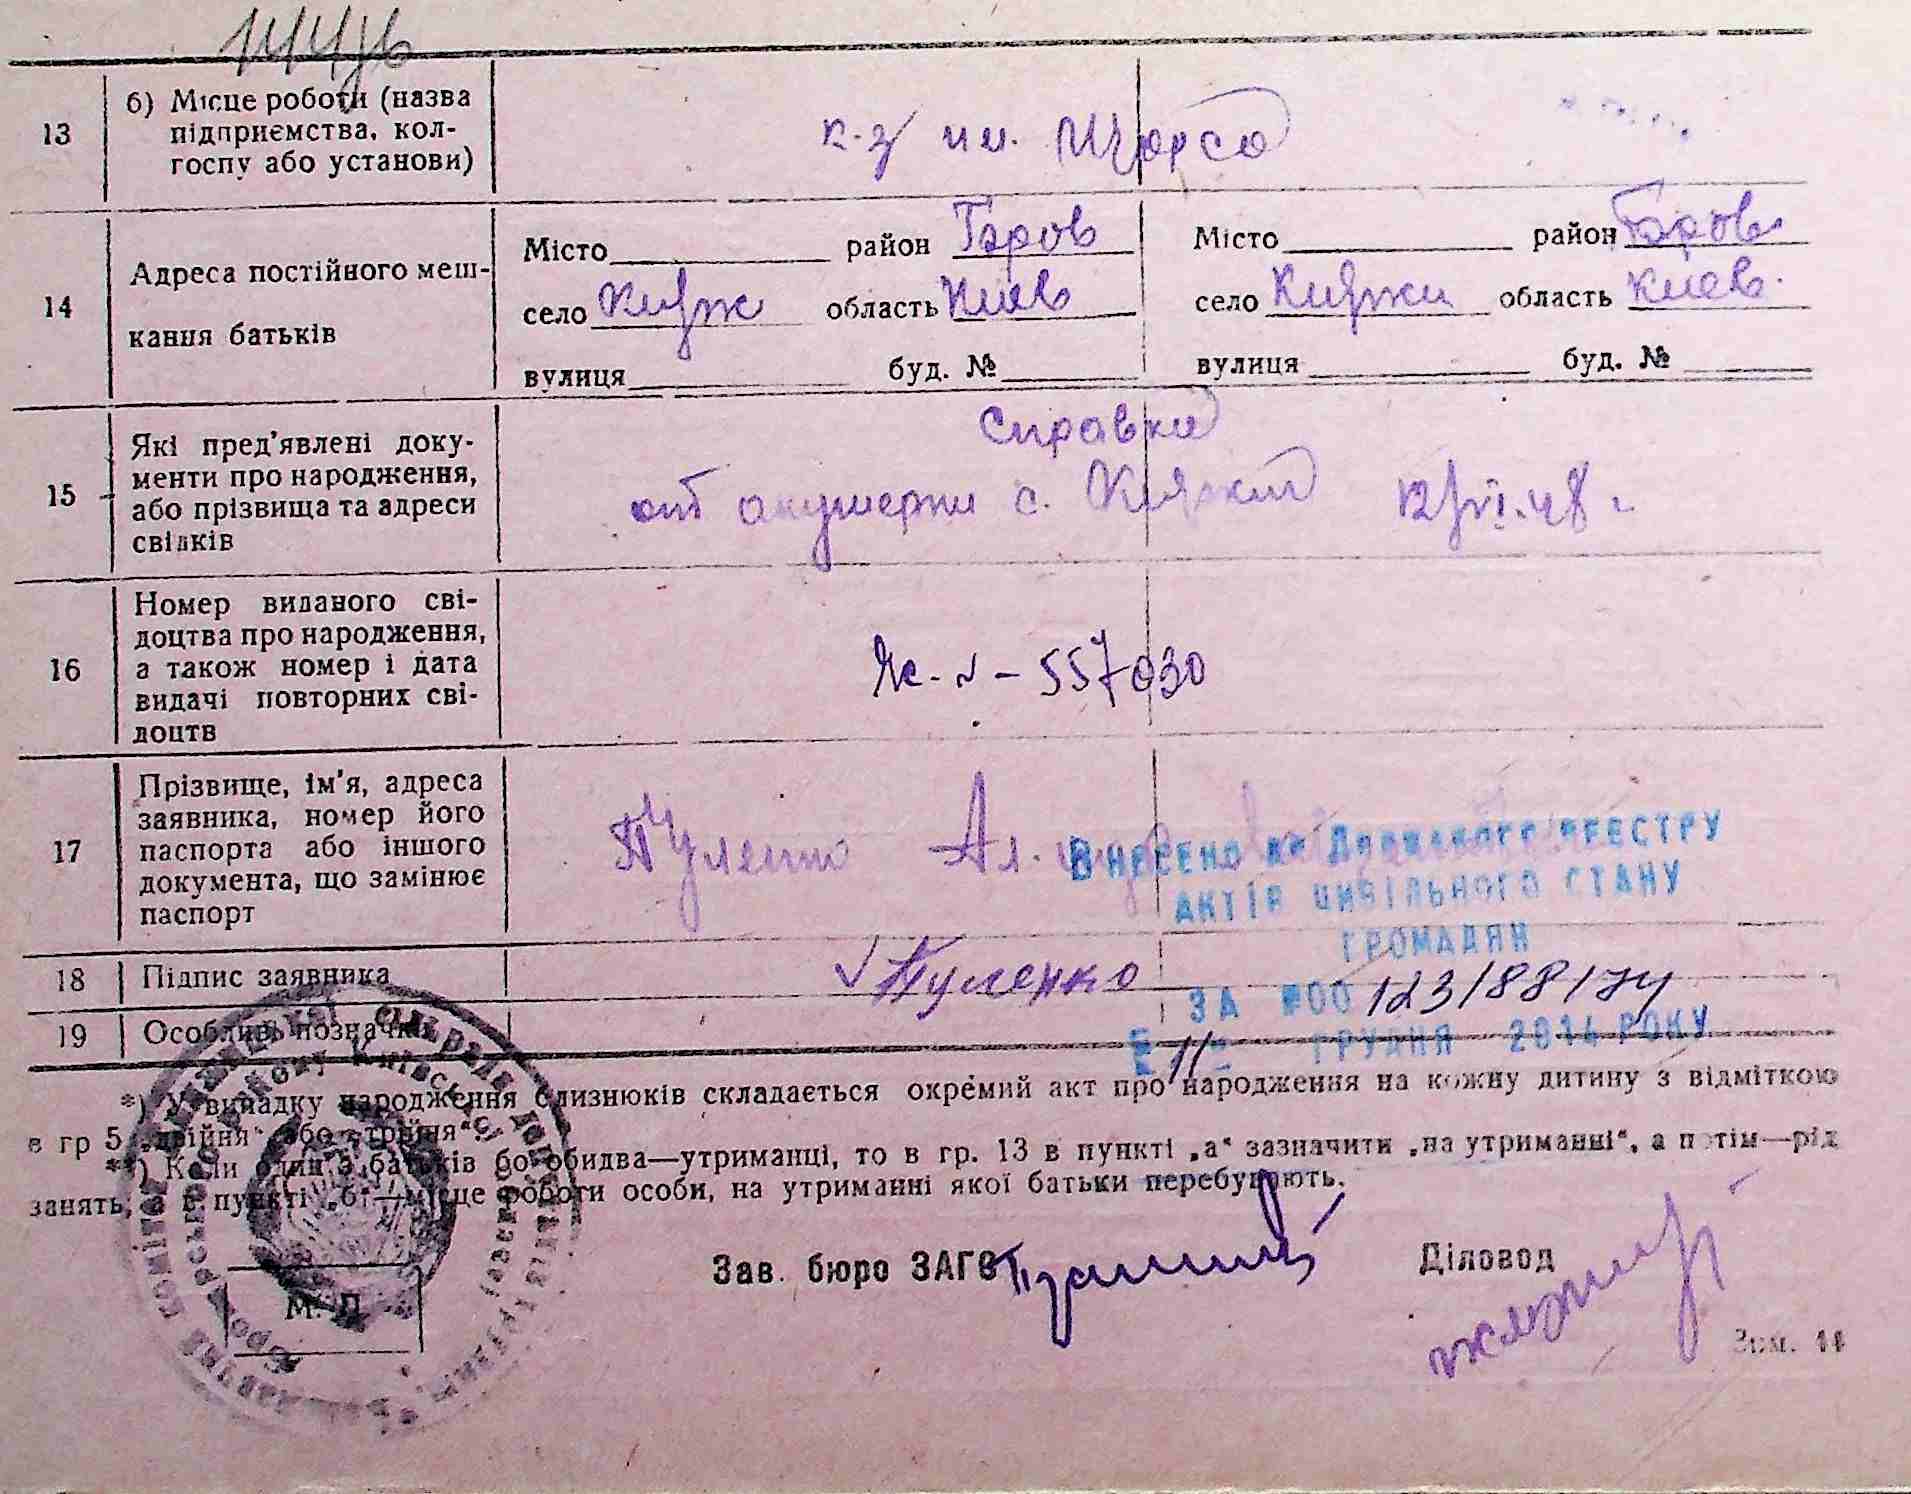 13
б) Місце роботи (назва
підприємства, кол-
госпу або установи)
к-з им. Щорса
14
Адреса постійного меш-
кання батьків
Місто район Бэров
село Княж область Киев
вулиця буд. №
Місто район Бэров
село Княжи область Киев.
вулиця буд. №
15
Які пред'явлені доку-
менти про народження,
або прізвища та адреси
свідків
Справка
от акушерки с. Княжи 12/VI.48 г
16
Номер виданого сві-
доцтва про народження,
а також номер і дата
видачі повторних сві-
доцтв
№ - 557030
17
Прізвище, ім'я, адреса
заявника, номер його
паспорта або іншого
документа, що замінює
паспорт
Пуленко Ал.
Внесено до Державного реєстру
актів цивільного стану
громадян
18
Підпис заявника
Пуленко
за №00 123188174
19
Особливі позначки
11 грудня 2014 року
*) У випадку народження близнюків складається окремий акт про народження на кожну дитину з відміткою
в гр 5 „двійня“ або „трійня“.
**) Коли один з батьків бо обидва—утриманці, то в гр. 13 в пункті „а“ зазначити „на утриманні“, а потім—рід
занять, а в пункті „б“—місце роботи особи, на утриманні якої батьки перебувають.
Зав. бюро ЗАГС
Діловод
М. П.
Зам. 44